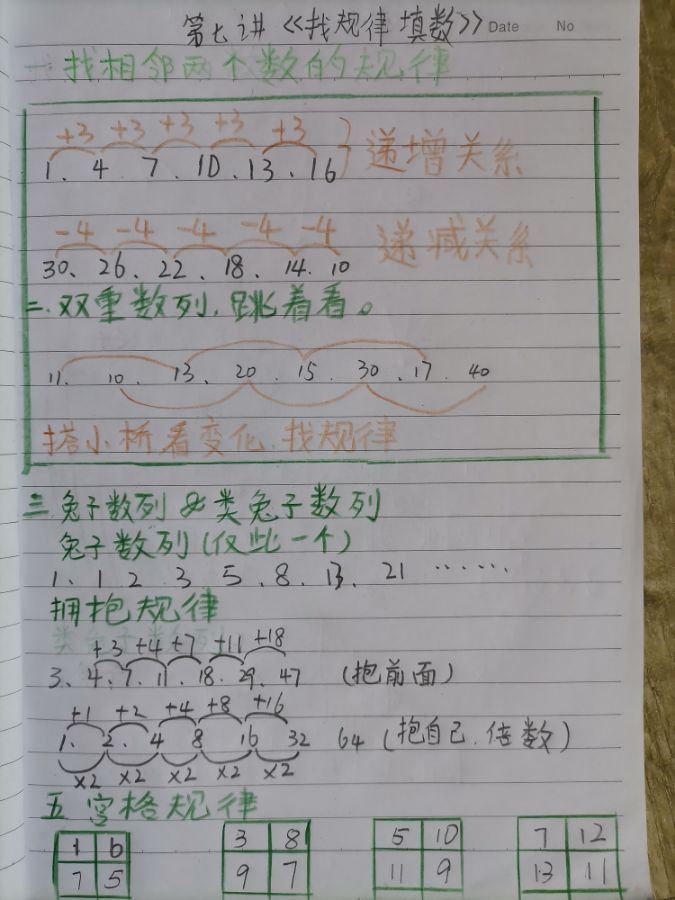 第七讲 《找规律填数》 Date No
一 找相邻两个数的规律
+3 +3 +3 +3 +3
1、4、7、10、13、16 } 递增关系
-4 -4 -4 -4 -4
30、26、22、18、14、10 递减关系
二、双重数列，跳着看。
11、10、13、20、15、30、17、40
搭小桥看变化，找规律
三 兔子数列 & 类兔子数列
兔子数列(仅此一个)
1、1 2 3 5、8、13、21 ……
拥抱规律
类兔子数列
+3 +4 +7 +11 +18
3、4、7、11、18、29、47 (抱前面)
+1 +2 +4 +8 +16
1、2、4 8 16 32 64 (抱自己、倍数)
×2 ×2 ×2 ×2 ×2
五 宫格规律
1 6 3 8 5 10 7 12
7 5 9 7 11 9 13 11